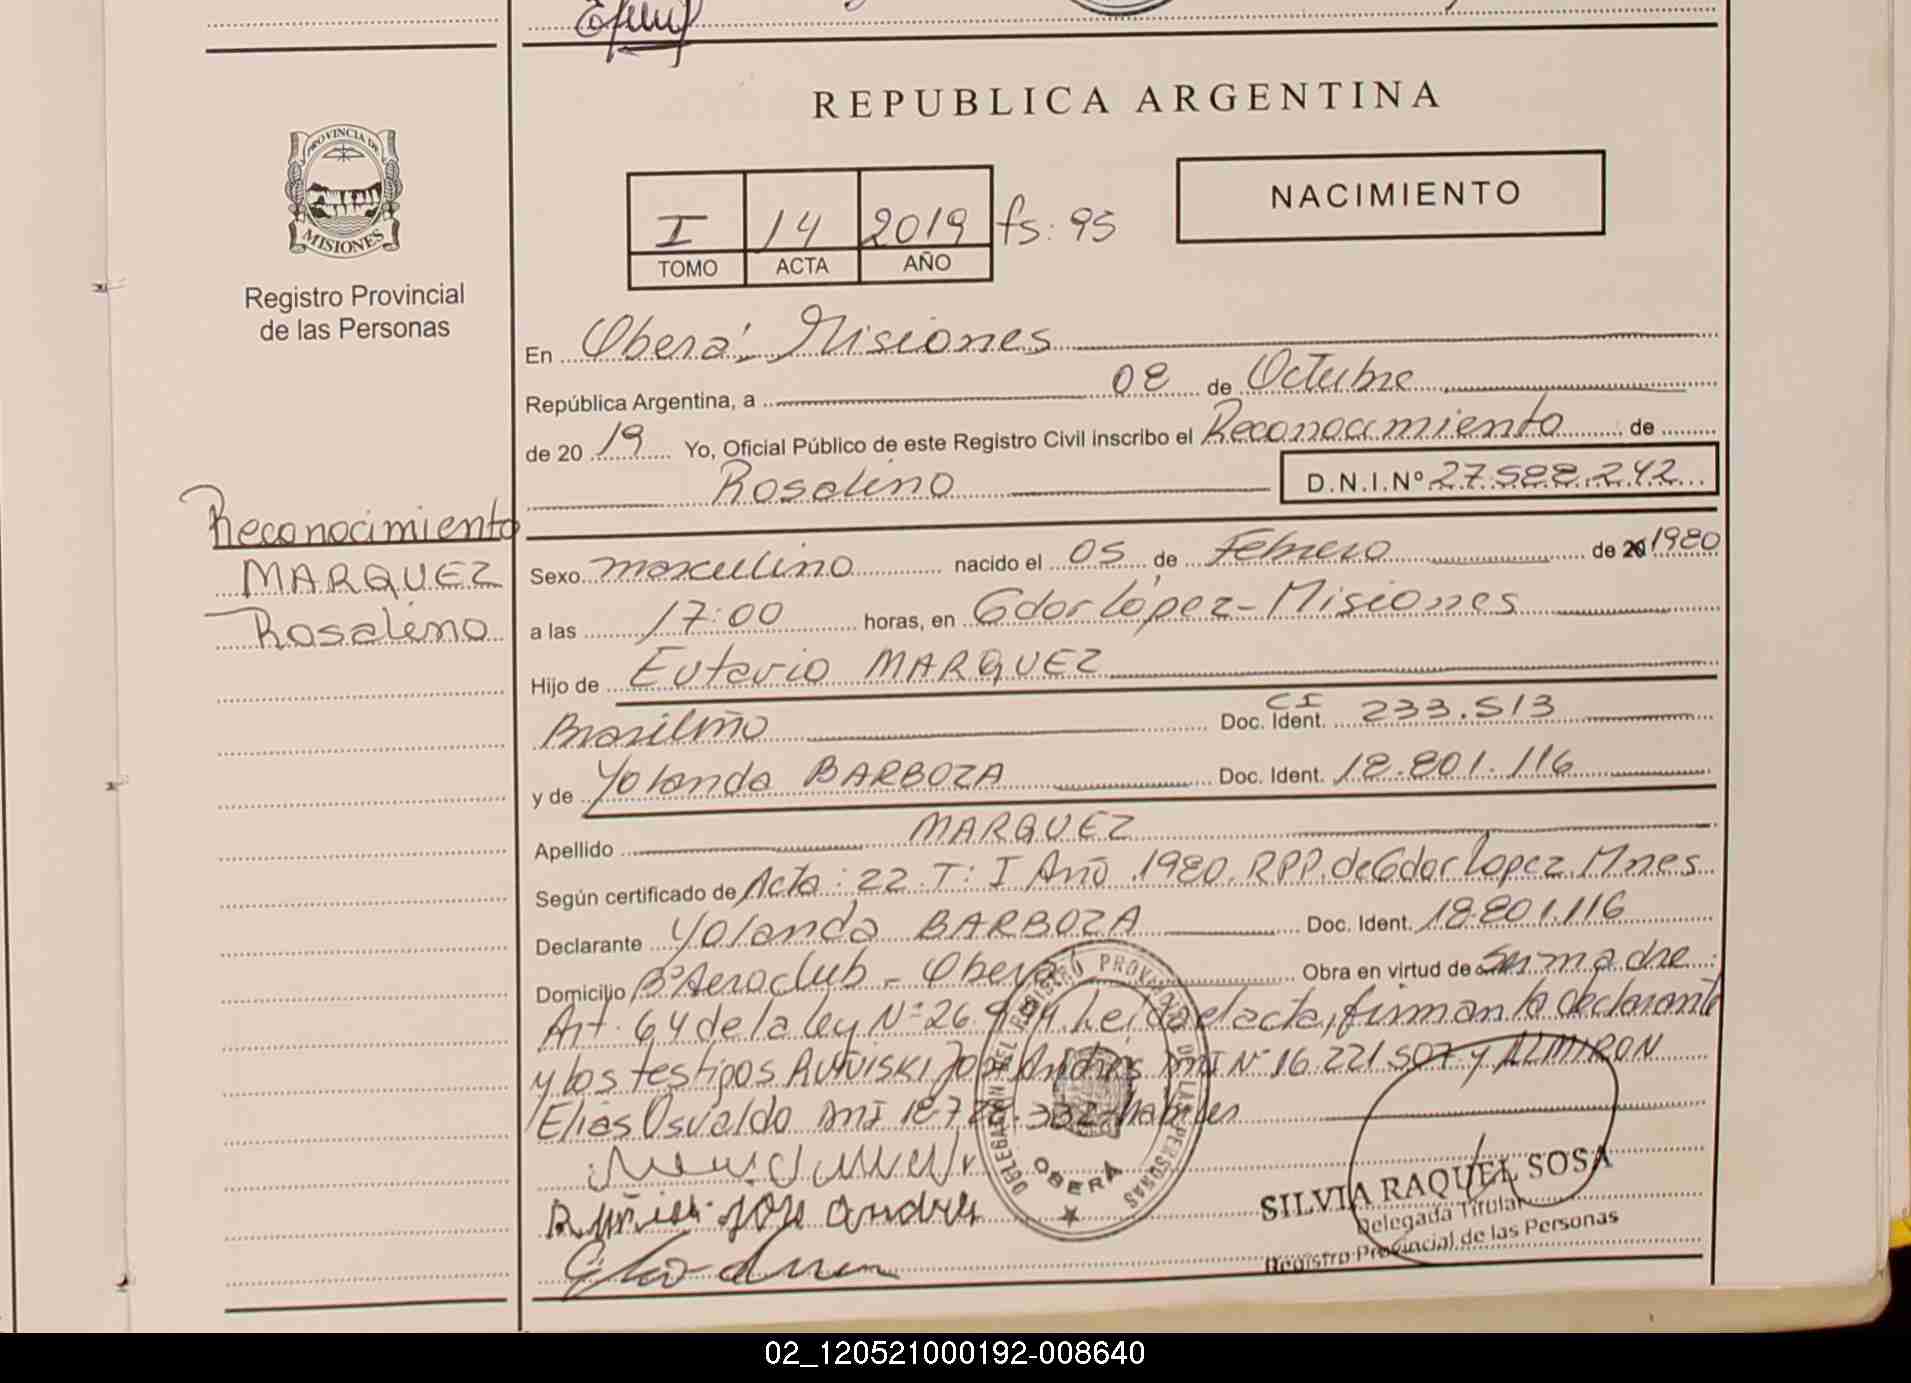 REPUBLICA ARGENTINA
PROVINCIA DE
MISIONES
Registro Provincial
de las Personas
I 14 2019 fs: 95
TOMO ACTA AÑO
NACIMIENTO
En Oberá Misiones
República Argentina, a 08 de Octubre
de 2019 Yo, Oficial Público de este Registro Civil inscribo el Reconocimiento de
Rosalino D.N.I.Nº 27.528.242
Reconocimiento
MARQUEZ
Rosalino
Sexo masculino nacido el 05 de Febrero de 20 1980
a las 17:00 horas, en Gdor López - Misiones
Hijo de Eutavio MARQUEZ
Brasileño Doc. Ident. CI 233.513
y de Yolanda BARBOZA Doc. Ident. 18.801.116
Apellido MARQUEZ
Según certificado de Acta: 22 T: I Año 1980. RPP. de Gdor Lopez Mnes
Declarante Yolanda BARBOZA Doc. Ident. 18.801.116
Domicilio Bº Aeroclub - Oberá Obra en virtud de ser madre
Art. 64 de la ley Nº 26.994. Leída el acta, firman la declarante
y los testigos José Andrés DNI Nº 16.221.507 y ALMIRON
Elias Osvaldo DNI 18.728.332 habiles
Jose Andres
DELEGACION DEL REGISTRO PROVINCIAL DE LAS PERSONAS
OBERÁ
SILVIA RAQUEL SOSA
Delegada Titular
Registro Provincial de las Personas
02_120521000192-008640